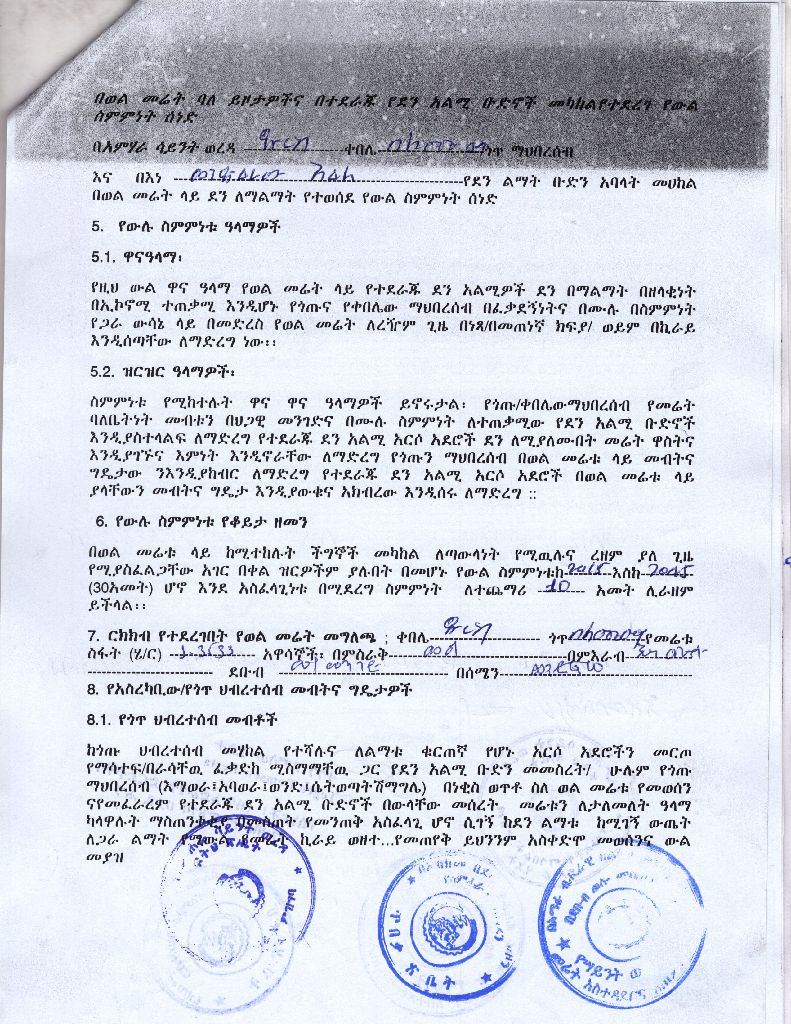 በወል መሬት ባለ ይዞታዎችና በተደራጁ የደን አልሚ ቡድኖች መካከልየተደረገ የውል
ስምምነት ሰነድ
በአማሃራ ሳይንት ወረዳ ቀበሌ ጎጥ ማህበረሰብ
እና በእነ የደን ልማት ቡድን አባላት መሀከል
በወል መሬት ላይ ደን ለማልማት የተወሰደ የውል ስምምነት ሰነድ
5. የውሉ ስምምነቱ ዓላማዎች
5.1. ዋናዓላማ፡
የዚህ ውል ዋና ዓላማ የወል መሬት ላይ የተደራጁ ደን አልሚዎች ደን በማልማት በዘላቂነት
በኢኮኖሚ ተጠቃሚ እንዲሆኑ የጎጡና የቀበሌው ማህበረሰብ በፈቃደኝነትና በሙሉ በስምምነት
የጋራ ውሳኔ ላይ በመድረስ የወል መሬት ለረዥም ጊዜ በነጻ/በመጠነኛ ክፍያ/ ወይም በኪራይ
እንዲሰጣቸው ለማድረግ ነው፡፡
5.2. ዝርዝር ዓላማዎች፡
ስምምነቱ የሚከተሉት ዋና ዋና ዓላማዎች ይኖሩታል፡ የጎጡ/ቀበሌውማህበረሰብ የመሬት
ባለቤትነት መብቱን በህጋዊ መንገድና በሙሉ ስምምነት ለተጠቃሚው የደን አልሚ ቡድኖች
እንዲያስተላልፍ ለማድረግ የተደራጁ ደን አልሚ አርሶ አደሮች ደን ለሚያለሙበት መሬት ዋስትና
እንዲያገኙና እምነት እንዲኖራቸው ለማድረግ የጎጡን ማህበረሰብ በወል መሬቱ ላይ መብትና
ግዴታው ንእንዲያከብር ለማድረግ የተደራጁ ደን አልሚ አርሶ አደሮች በወል መሬቱ ላይ
ያላቸውን መብትና ግዴታ እንዲያውቁና አክብረው እንዲሰሩ ለማድረግ ::
6. የውሉ ስምምነቱ የቆይታ ዘመን
በወል መሬቱ ላይ ከሚተከሉት ችግኞች መካከል ለጣውላነት የሚዉሉና ረዘም ያለ ጊዜ
የሚያስፈልጋቸው አገር በቀል ዝርዎችም ያሉበት በመሆኑ የውል ስምምነቱከ 2015 እስከ 2045
(30አመት) ሆኖ እንደ አስፈላጊነቱ በሚደረግ ስምምነት ለተጨማሪ 10 አመት ሊራዘም
ይችላል፡፡
7. ርክክብ የተደረገበት የወል መሬት መግለጫ ; ቀበሌ ጎጥ የመሬቱ
ስፋት (ሄ/ር) አዋሳኞች፡ በምስራቅ በምእራብ
ደቡብ በሰሜን
8. የአስረካቢው/የጎጥ ህብረተሰብ መብትና ግዴታዎች
8.1. የጎጥ ህብረተሰብ መብቶች
ከጎጡ ሀብረተሰብ መሃከል የተሻሉና ለልማቱ ቁርጠኛ የሆኑ አርሶ አደሮችን መርጦ
የማሳተፍ/በራሳቸዉ ፈቃድከ ሚስማማቸዉ ጋር የደን አልሚ ቡድን መመስረት/ ሁሉም የጎጡ
ማህበረሰብ (እማወራ፤አባወራ፤ወንድ፤ሴትወጣትሽማግሌ) በነቂስ ወጥቶ ስለ ወል መሬቱ የመወሰን
ናየመፈራረም የተደራጁ ደን አልሚ ቡድኖች በውላቸው መሰረት መሬቱን ለታለመለት ዓላማ
ካላዋሉት ማስጠንቀቂያ በመስጠት የመንጠቅ አስፈላጊ ሆኖ ሲገኝ ከደን ልማቱ ከሚገኝ ውጤት
ለጋራ ልማት የሚውል የመሬት ኪራይ ወዘተ...የመጠየቅ ይህንንም አስቀድሞ መወሰንና ውል
መያዝ